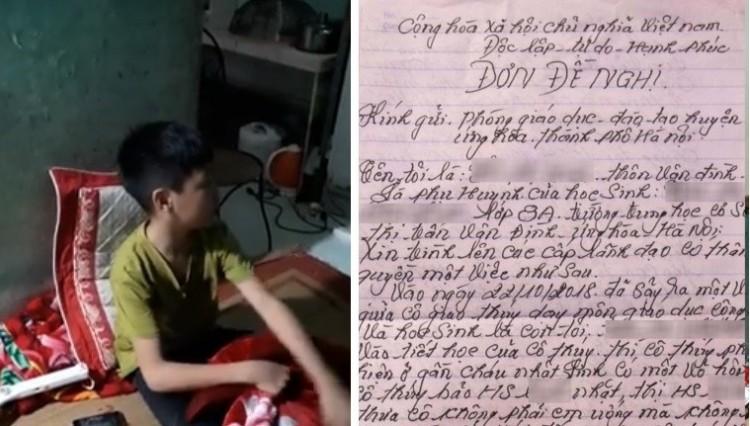 Cộng hòa xã hội chủ nghĩa Việt nam
Độc lập - tự do - Hạnh phúc
ĐƠN ĐỀ NGHỊ
Kính gửi. phòng giáo dục - đào tạo huyện
ứng hòa. thành phố Hà nội
Tên tôi là: thôn Vân đình
là phụ Huynh của học Sinh:
lớp 8A. trường trung học cơ S
thị trấn Vân Đình. ứng hòa Hà Nội
Xin trình lên các cấp lãnh đạo có thẩm
quyền một việc như Sau.
Vào ngày 22/10/2018 đã Sảy ra một V
giữa cô giáo thúy dạy môn giáo dục công
và học Sinh là con tôi.
vào tiết học của cô thúy. thì cô thúy ph
hiện ở gần cháu nhật một vỏ
cô thúy bảo HS nhặt, thì HS
thưa cô không phải em uống mà không